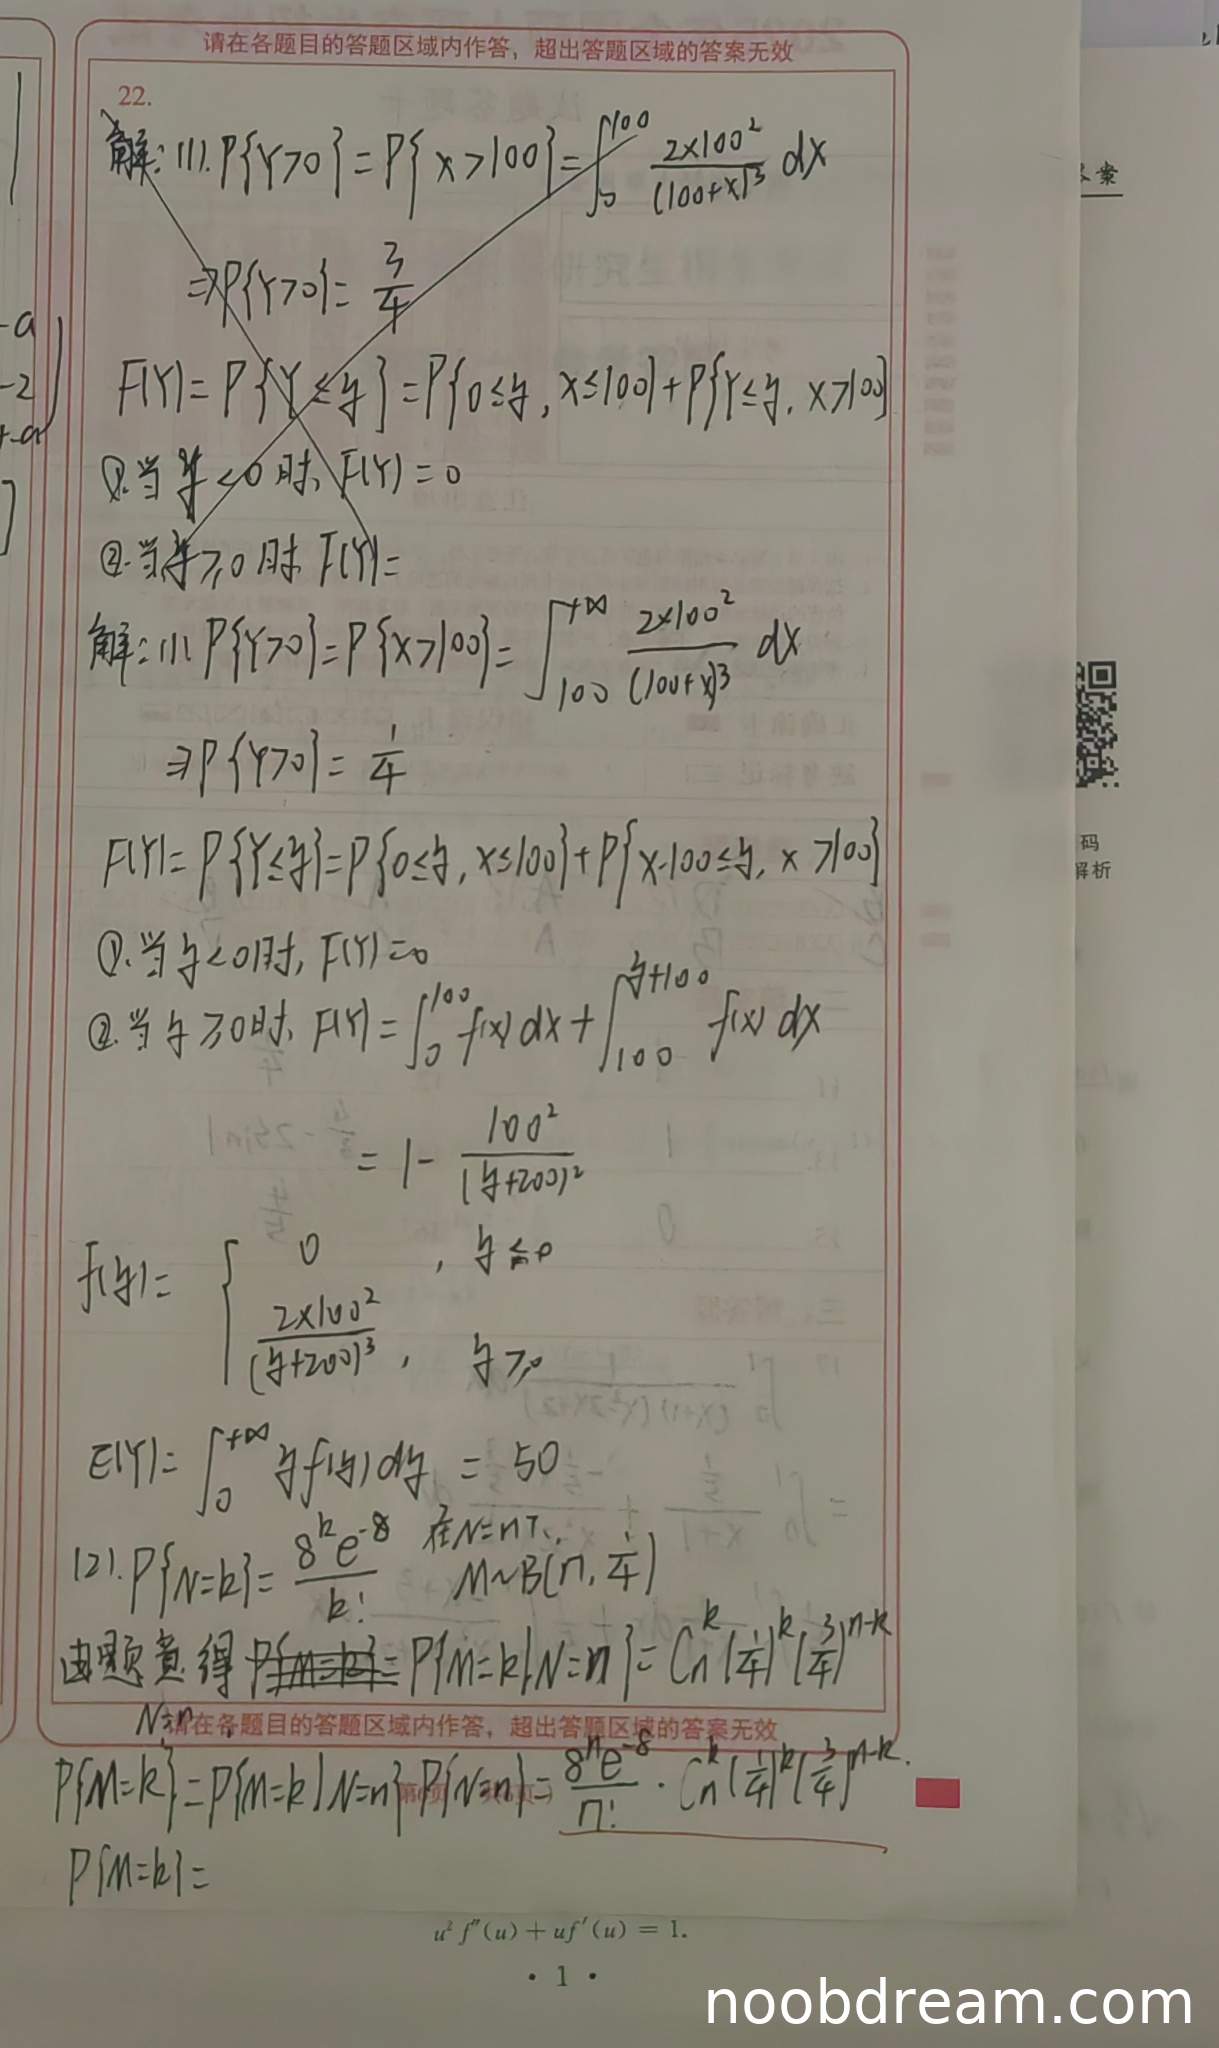 请在各题目的答题区域内作答，超出答题区域的答案无效
22.
解: (1). P{Y>0} = P{X>100} = ∫_0^100 2×100²/(100+x)³ dx
⇒P{Y>0} = 3/4
F(Y) = P{Y≤y} = P{0≤y, X≤100} + P{Y≤y, X>100}
①.当y<0时, F(Y)=0
②.当y≥0时, F(Y)=
解: (1). P{Y>0} = P{X>100} = ∫_100^+∞ 2×100²/(100+x)³ dx
⇒P{Y>0} = 1/4
F(Y) = P{Y≤y} = P{0≤y, X≤100} + P{X-100≤y, X>100}
①.当y<0时, F(Y)=0
②.当y≥0时, F(Y) = ∫_0^100 f(x)dx + ∫_100^y+100 f(x)dx
= 1 - 100²/(y+200)²
f(y) = { 0 , y≤0
2×100²/(y+200)³ , y≥0
E(Y) = ∫_0^+∞ y f(y) dy = 50
(2). P{N=k} = 8^k e^-8/k! 在N=n下, M~B(n, 1/4)
由题意得 P{M=k}= P{M=k|N=n} = C_n^k (1/4)^k (3/4)^n-k
请在各题目的答题区域内作答，超出答题区域的答案无效
N=n
P{M=k} = P{M=k|N=n} P{N=n} = 8^n e^-8/n! · C_n^k (1/4)^k (3/4)^n-k.
P{M=k} =
u² f″(u) + uf′(u) = 1.
· 1 ·
答案
码
解析
noobdream.com